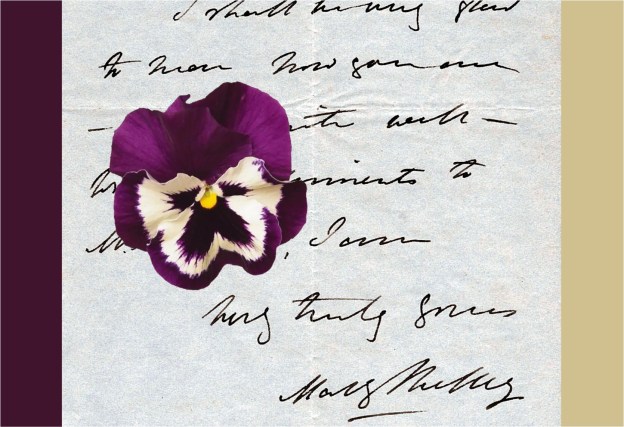 I shall be very glad
to hear how you are
– quite well –
compliments to
I am
Very truly yours
Mary Shelley